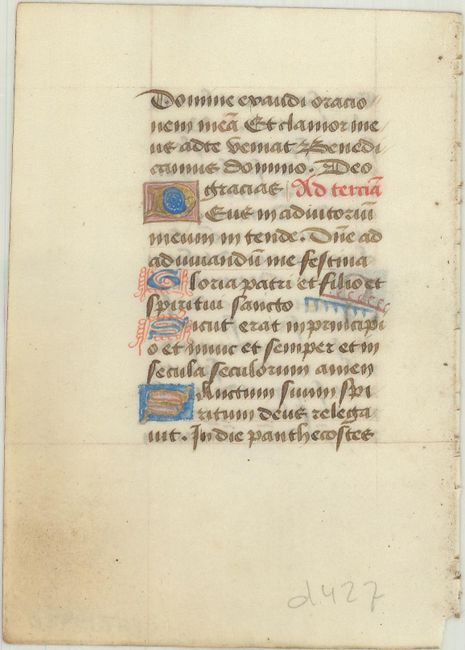 Domine exaudi oracio
nem meā Et clamor me
us ad te veniat Benedi
camus domino. Deo
gracias Ad terciā
Deus in adiutoriū
meum in tende. Dne ad
adiuuandū me festina
Gloria patri et filio et
spiritui sancto
Sicut erat in principi
o et nunc et semper et in
secula seculorum amen
Suum spi
ritum deus relega
uit. In die panthecostes
d.427